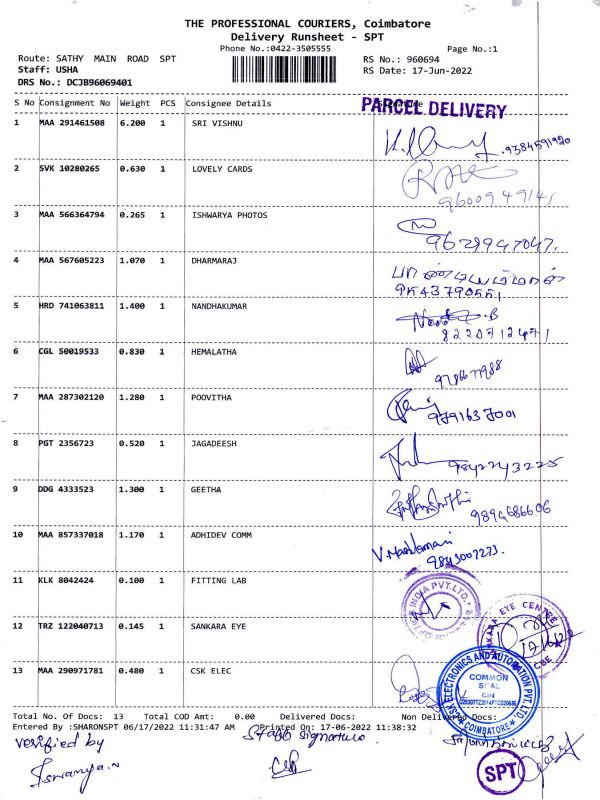 THE PROFESSIONAL COURIERS, Coimbatore
Delivery Runsheet - SPT
Phone No.:0422-3505555
Page No.:1
Route: SATHY MAIN ROAD SPT
RS No.: 960694
Staff: USHA
RS Date: 17-Jun-2022
DRS No.: DCJB96069401
S No Consignment No Weight PCS Consignee Details
PARCEL DELIVERY
1 MAA 291461508 6.200 1 SRI VISHNU
9384591920
2 SVK 10280265 0.630 1 LOVELY CARDS
9600949141
3 MAA 566364794 0.265 1 ISHWARYA PHOTOS
9629947047.
4 MAA 567605223 1.070 1 DHARMARAJ
5 HRD 741063811 1.400 1 NANDHAKUMAR
8220712471
6 CGL 50019533 0.830 1 HEMALATHA
7 MAA 287302120 1.280 1 POOVITHA
9791637001
8 PGT 2356723 0.520 1 JAGADEESH
9842243225
9 DDG 4333523 1.300 1 GEETHA
9894686606
10 MAA 857337018 1.170 1 ADHIDEV COMM
9843007273.
11 KLK 8042424 0.100 1 FITTING LAB
INDIA PVT.LTD.
12 TRZ 122040713 0.145 1 SANKARA EYE
SANKARA EYE CENTRE
CBE
13 MAA 290971781 0.480 1 CSK ELEC
CSK ELECTRONICS AND AUTOMATION PVT. LTD.
COMMON
SEAL
CIN
COIMBATORE
Total No. Of Docs: 13 Total COD Amt: 0.00 Delivered Docs: Non Delivered Docs:
Entered By :SHARONSPT 06/17/2022 11:31:47 AM Printed On: 17-06-2022 11:38:32
verified by
Staff signature
SPT